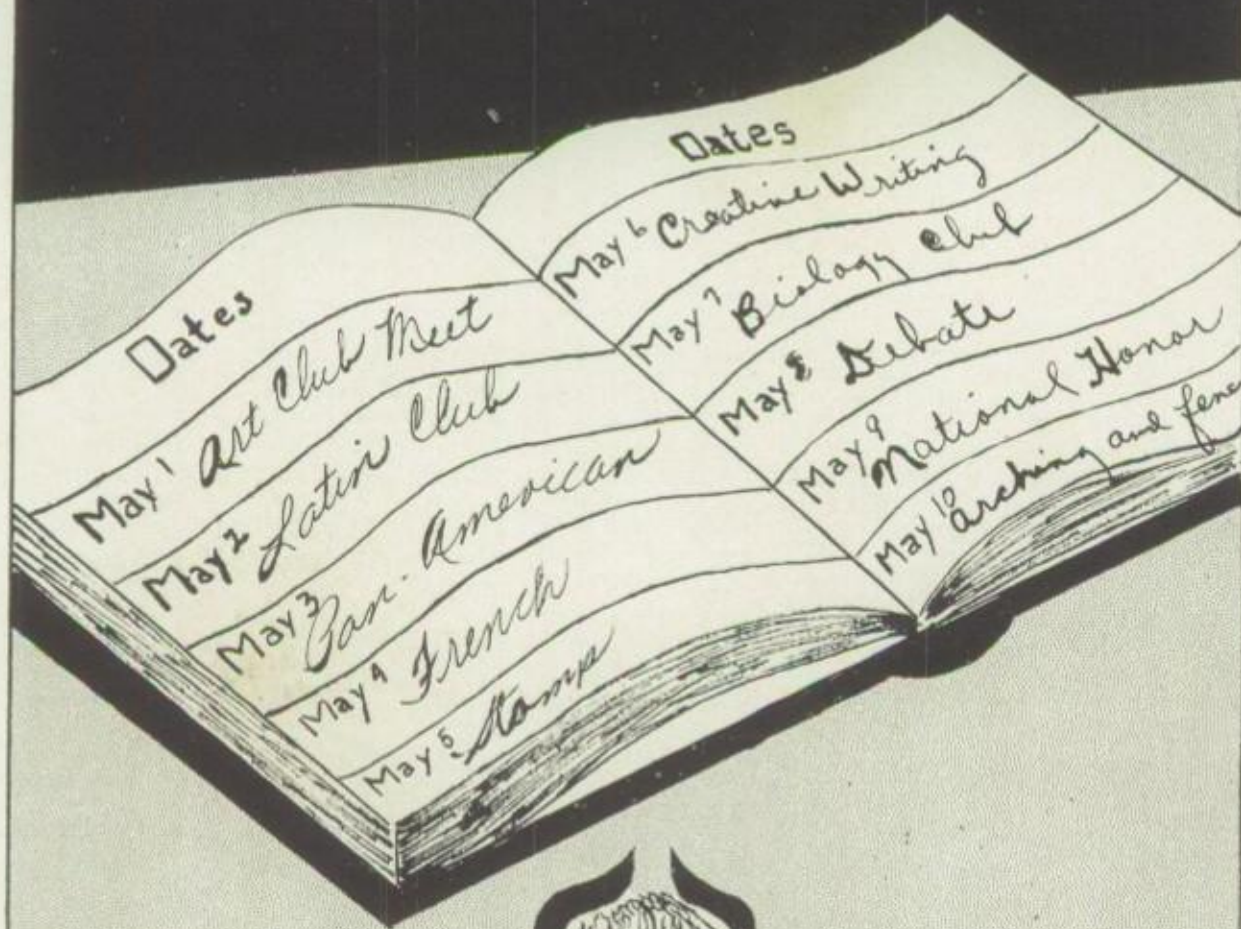 Dates
May 1 Art Club Meet
May 2 Latin Club
May 3 Pan-American
May 4 French
May 5 Stamp
Dates
May 6 Creative Writing
May 7 Biology Club
May 8 Debate
May 9 National Honor
May 10 Arching and fenc